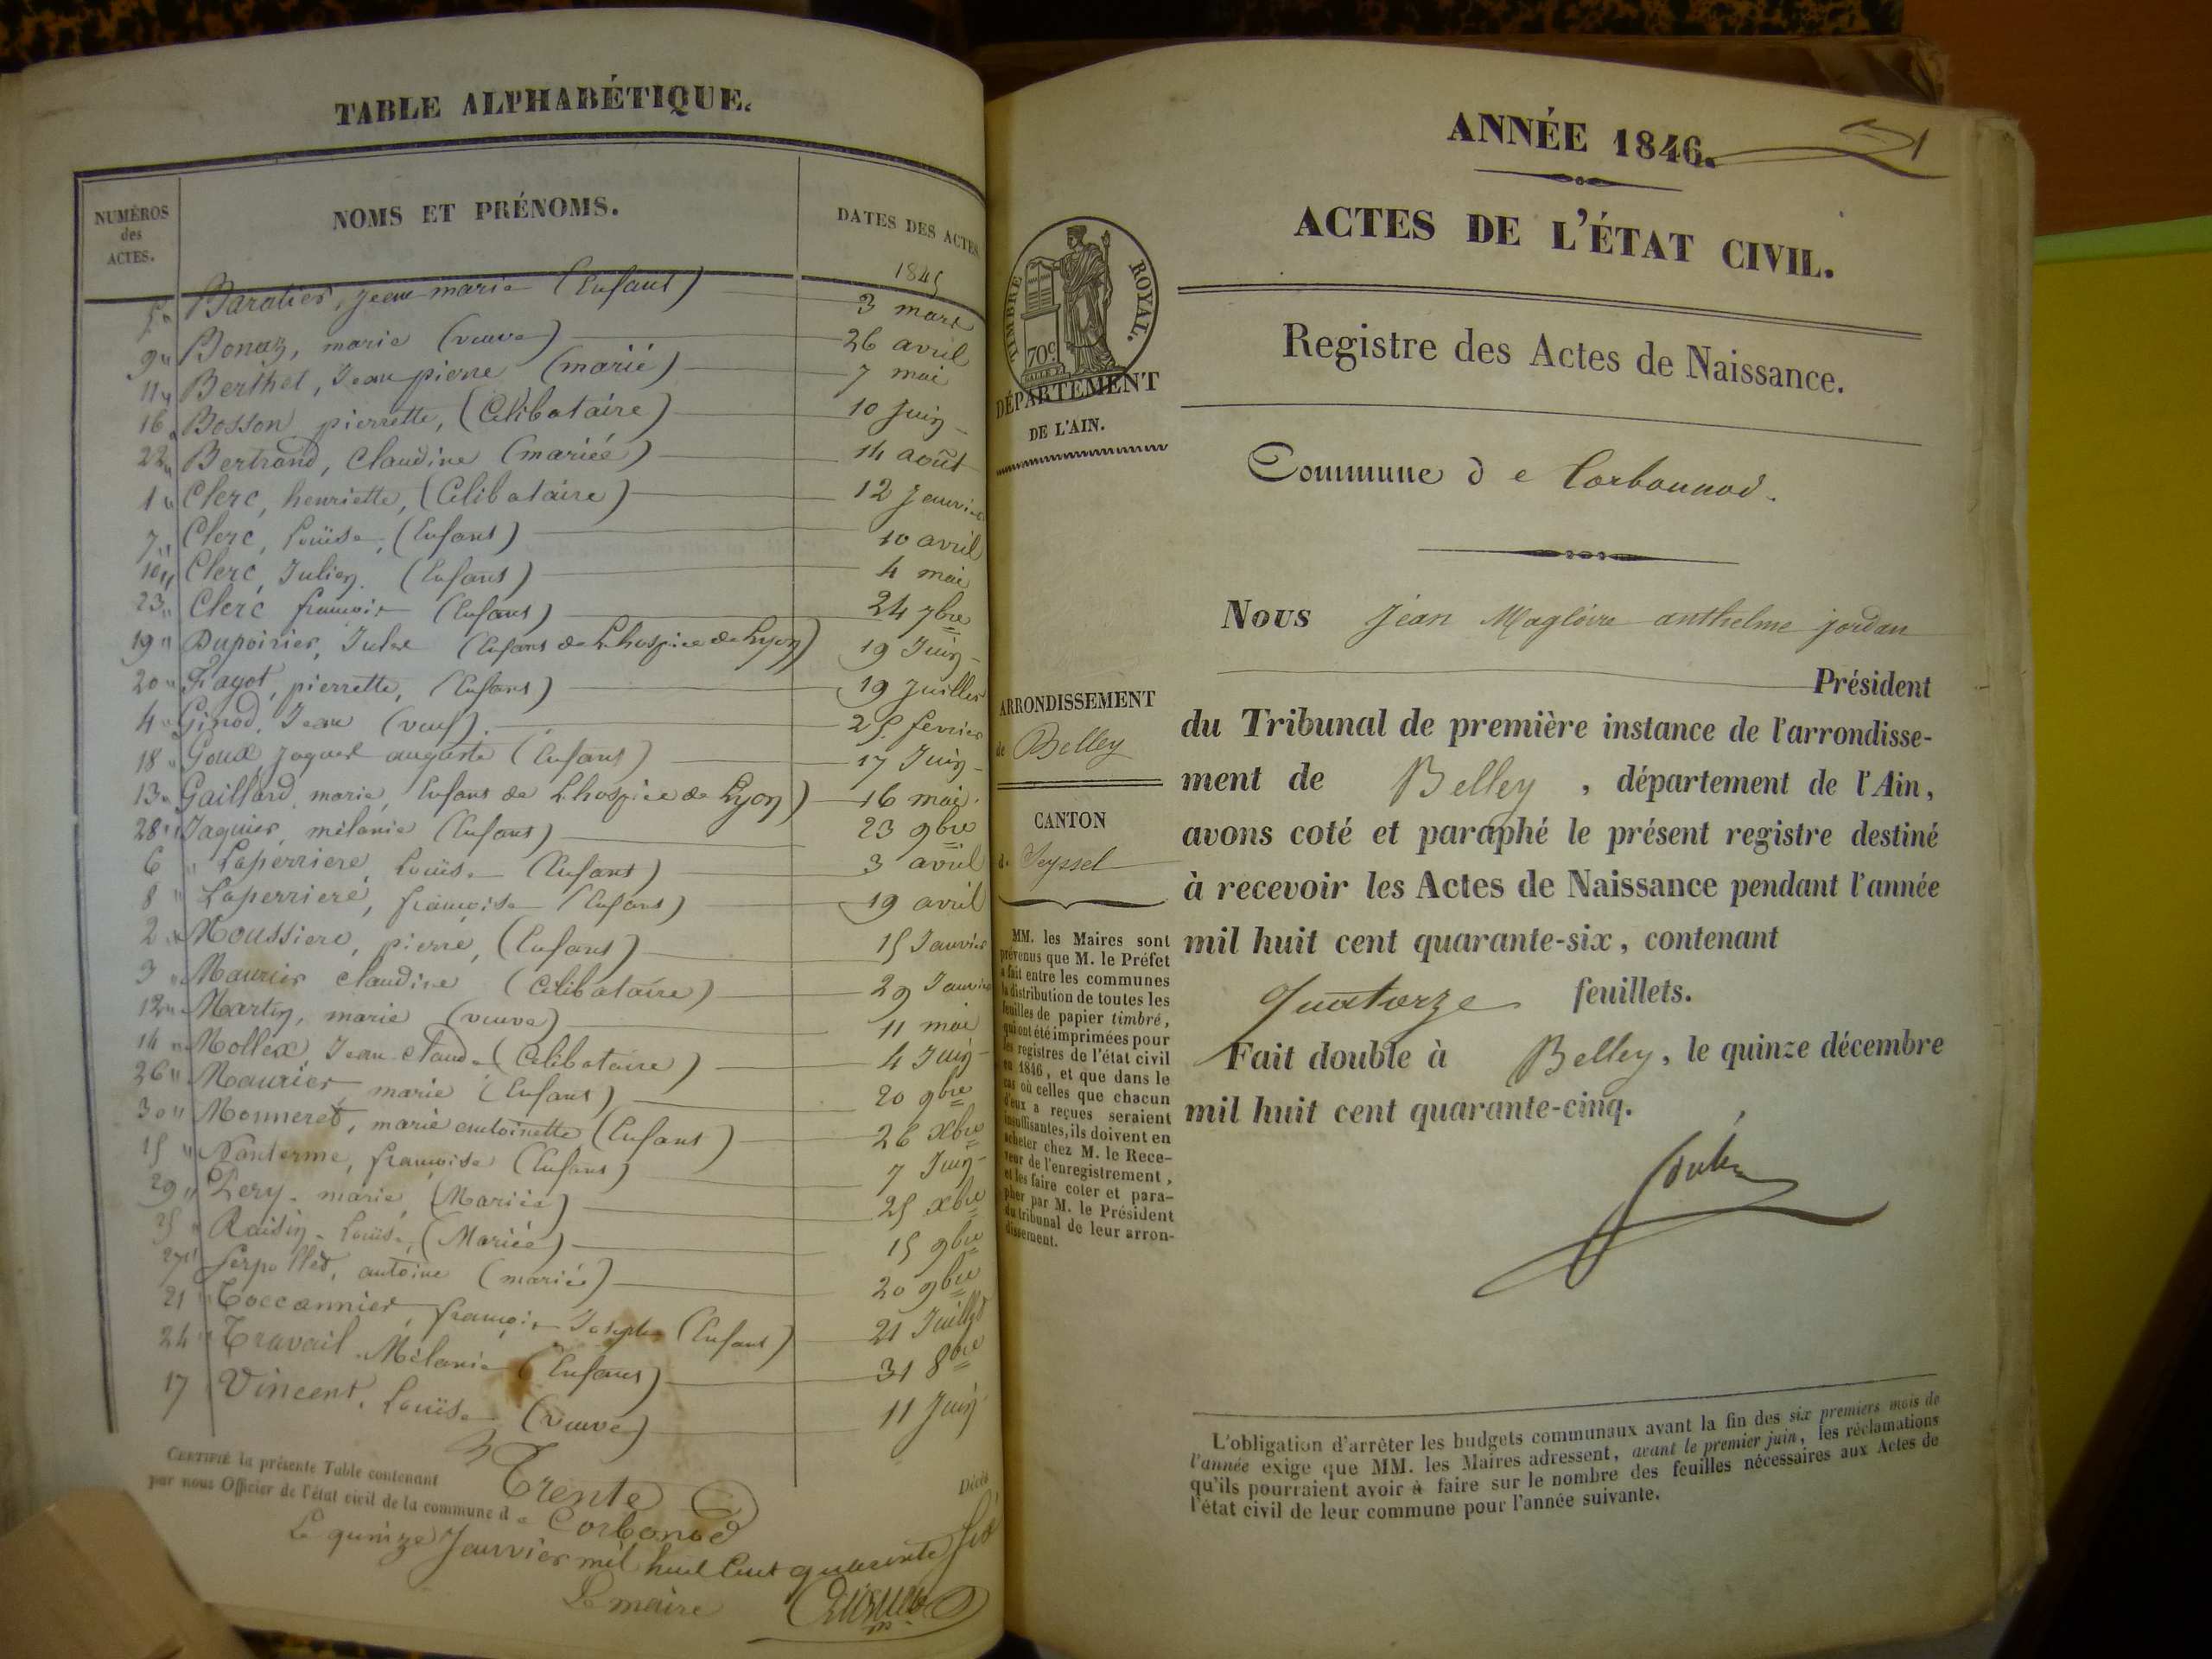 TABLE ALPHABÉTIQUE.
NUMÉROS des ACTES. NOMS ET PRÉNOMS. DATES DES ACTES
1845
5 " Baratier, jean-marie (Enfant) 3 mars
9 " Bonaz, marie (veuve) 26 avril
11 " Berthet, Jean pierre (marié) 7 mai
16 " Bosson pierrette, (Célibataire) 10 Juin
22 " Bertrand, Claudine (mariée) 14 août
1 " Clerc, henriette, (Célibataire) 12 Janvier
7 " Clerc, Louïse, (Enfant) 10 avril
10 " Clerc, Julien. (Enfant) 4 mai
23 " Clerc françois (Enfant) 24 7bre
19 " Dupoirier, Jules (Enfant de L'hospice de Lyon) 19 Juin
20 " Fayot, pierrette, (Enfant) 19 Juillet
4 " Ginod, Jean (veuf) 25 fevrier
18 " Goux jaques auguste (Enfant) 17 Juin
13 " Gaillard, marie, Enfant de L'hospice de Lyon) 16 mai
28 " Jaquier, mélanie (Enfant) 23 9bre
6 " Laperriere, Louïse (Enfant) 3 avril
8 " Laperriere, françoise (Enfant) 19 avril
2 " Moussiere, pierre, (Enfant) 15 Janvier
3 " Maurier claudine (Célibataire) 29 Janvier
12 " Martin, marie (veuve) 11 mai
14 " Mollex, Jean-claude (Célibataire) 4 Juin
26 " Maurier marie (Enfant) 20 9bre
30 " Monneret, marie antoinette (Enfant) 26 Xbre
15 " Nanterme, françoise (Enfant) 7 Juin
29 " Pery, marie, (Mariée) 25 xbre
25 " Raisin, Louïse, (Mariée) 15 9bre
27 " Serpollet, antoine (marié) 20 9bre
21 " Coccannier, françois Joseph (Enfant) 21 Juillet
24 " Travail Mélanie (Enfant) 31 8bre
17 Vincent, Louïse (veuve) 11 Juin
CERTIFIÉ la présente Table contenant Trente Décès
par nous Officier de l'état civil de la commune de Corbonod
Le quinze Janvier mil huit Cent quarante six
Le maire
ANNÉE 1846. 1
ACTES DE L'ÉTAT CIVIL.
Registre des Actes de Naissance.
TIMBRE ROYAL.
70c
DÉPARTEMENT
DE L'AIN.
Commune de Corbonnod.
Nous jean Magloire anthelme jordan
Président
du Tribunal de première instance de l'arrondisse-
ment de Belley, département de l'Ain,
avons coté et paraphé le présent registre destiné
à recevoir les Actes de Naissance pendant l'année
mil huit cent quarante-six, contenant
Quatorze feuillets.
Fait double à Belley, le quinze décembre
mil huit cent quarante-cinq.
ARRONDISSEMENT
de Belley
CANTON
de Seyssel
MM. les Maires sont
prévenus que M. le Préfet
a fait entre les communes
la distribution de toutes les
feuilles de papier timbré,
qui ont été imprimées pour
les registres de l'état civil
en 1846, et que dans le
cas où celles que chacun
d'eux a reçues seraient
insuffisantes, ils doivent en
acheter chez M. le Rece-
veur de l'enregistrement,
et les faire coter et para-
pher par M. le Président
du tribunal de leur arron-
dissement.
L'obligation d'arrêter les budgets communaux avant la fin des six premiers mois de
l'année exige que MM. les Maires adressent, avant le premier juin, les réclamations
qu'ils pourraient avoir à faire sur le nombre des feuilles nécessaires aux Actes de
l'état civil de leur commune pour l'année suivante.